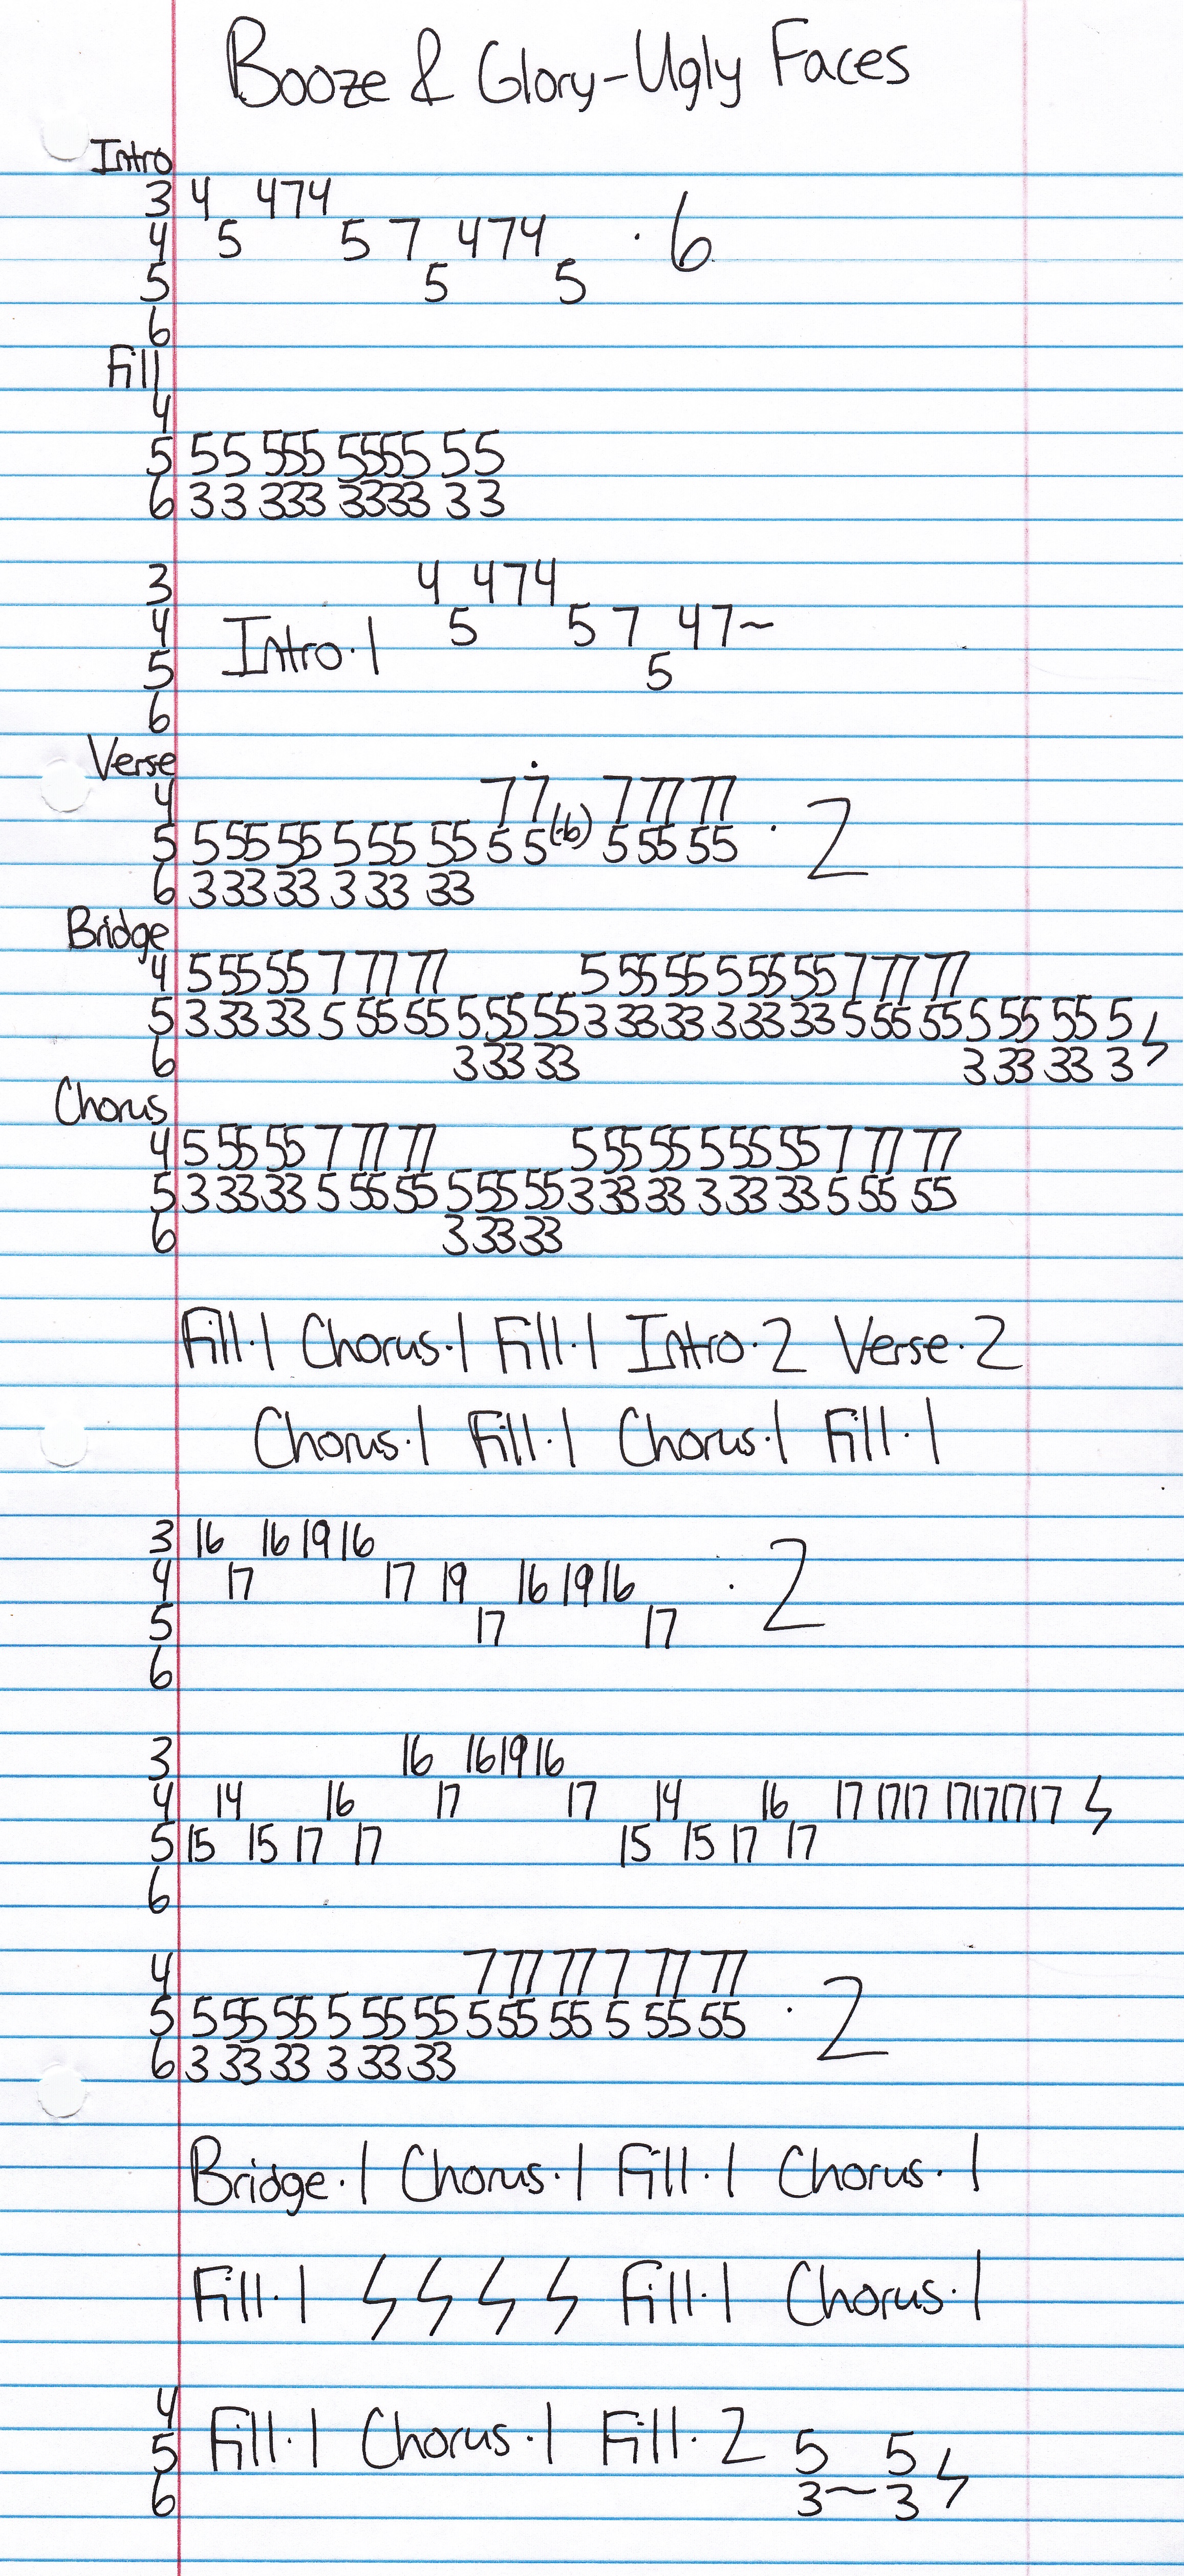 Booze & Glory-Ugly Faces
Intro
3 4 474
4 5 5 7 474 · 6
5 5 5
6
Fill
4
5 55 555 5555 55
6 33 333 3333 33
3 4 474
4 5 5 7 47~
Intro·1
5 5
6
Verse
4 7 7 7 77 77
5 5 55 55 5 55 55 5 5 (·6) 5 55 55 · 2
6 3 33 33 3 33 33
Bridge
4 5 55 55 7 77 77 5 55 55 5 55 55 7 77 77
5 3 33 33 5 55 55 5 55 55 3 33 33 3 33 33 5 55 55 5 55 55 5
6 3 33 33 3 33 33 3
Chorus
4 5 55 55 7 77 77 5 55 55 5 55 55 7 77 77
5 3 33 33 5 55 55 5 55 55 3 33 33 3 33 33 5 55 55
6 3 33 33
Fill·1 Chorus·1 Fill·1 Intro·2 Verse·2
Chorus·1 Fill·1 Chorus·1 Fill·1
3 16 16 19 16
4 17 17 19 16 19 16 · 2
5 17 17
6
3 16 16 19 16
4 14 16 17 17 14 16 17 17 17 17 17 17 17
5 15 15 17 17 15 15 17 17
6
4 7 77 77 7 77 77
5 5 55 55 5 55 55 5 55 55 5 55 55 · 2
6 3 33 33 3 33 33
Bridge·1 Chorus·1 Fill·1 Chorus·1
Fill·1 Fill·1 Chorus·1
4
5 Fill·1 Chorus·1 Fill·2 5 5
6 3~3